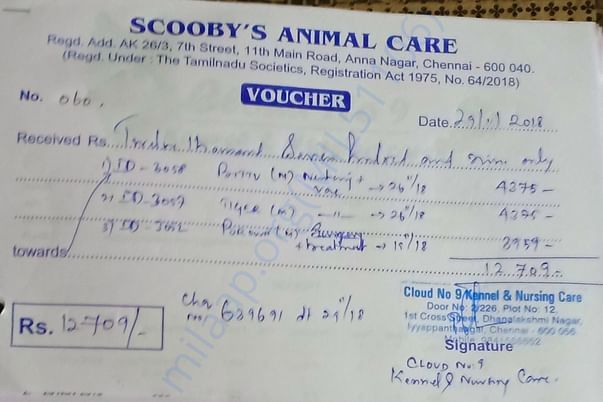 SCOOBY'S ANIMAL CARE
Regd. Add. AK 26/3, 7th Street, 11th Main Road, Anna Nagar, Chennai - 600 040.
(Regd. Under : The Tamilnadu Societics, Registration Act 1975, No. 64/2018)
VOUCHER
No. 060.
Date 29/11/2018
Received Rs. Twelve thousand Seven hundred and nine only
1) ID - 3058 (M) Neuteing + → 26/11/18 4375 -
2) ID - 3059 Tiger (M) -"- → 26/11/18 4375 -
3) ID - Surgery 3959 -
+ treatment → 15/11/18
towards
12709 -
Rs. 12709/-
Chq no, 639691 dt 29/11/18
Cloud No 9 Kennel & Nursing Care
Door No: 2/226, Plot No: 12,
1st Cross Street, Dhanalakshmi Nagar,
Iyyappanthangal, Chennai - 600 056
Signature
CLOUD No: 9
Kennel & Nursing Care.
milaap.org